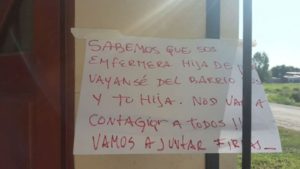 SABEMOS QUE SOS
ENFERMERA HIJA DE
VAYANSÉ DEL BARRIO VOS
Y TU HIJA. NOS VAN A
CONTAGIAR A TODOS!!
VAMOS A JUNTAR FIRMAS